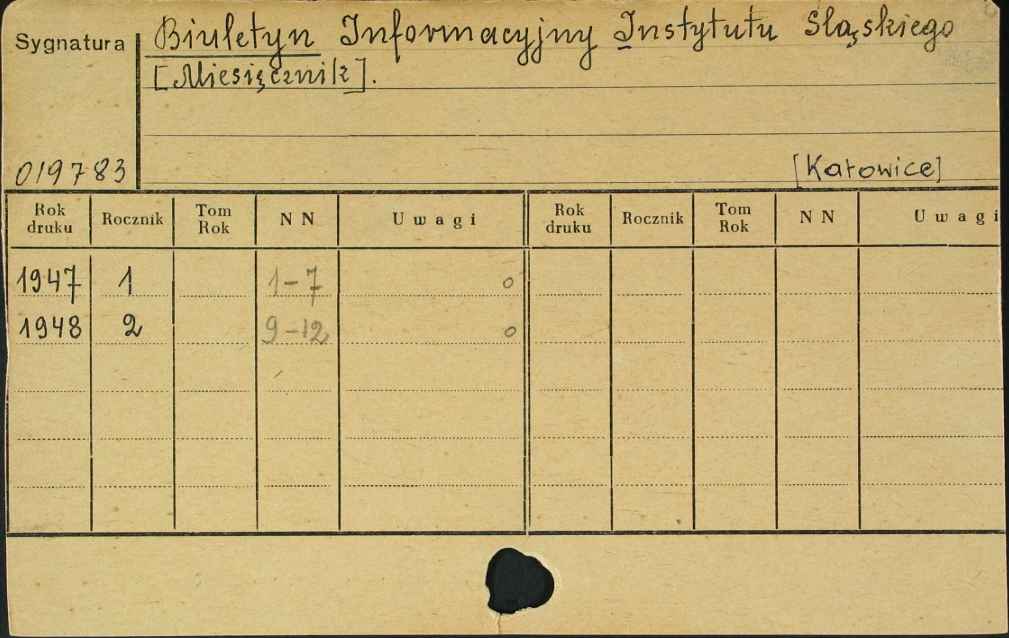 Sygnatura
Biuletyn Informacyjny Instytutu Śląskiego
[Miesięcznik].
019783
[Katowice]
Rok druku Rocznik Tom Rok NN Uwagi Rok druku Rocznik Tom Rok NN Uwagi
1947 1 1-7 o
1948 2 9-12 o